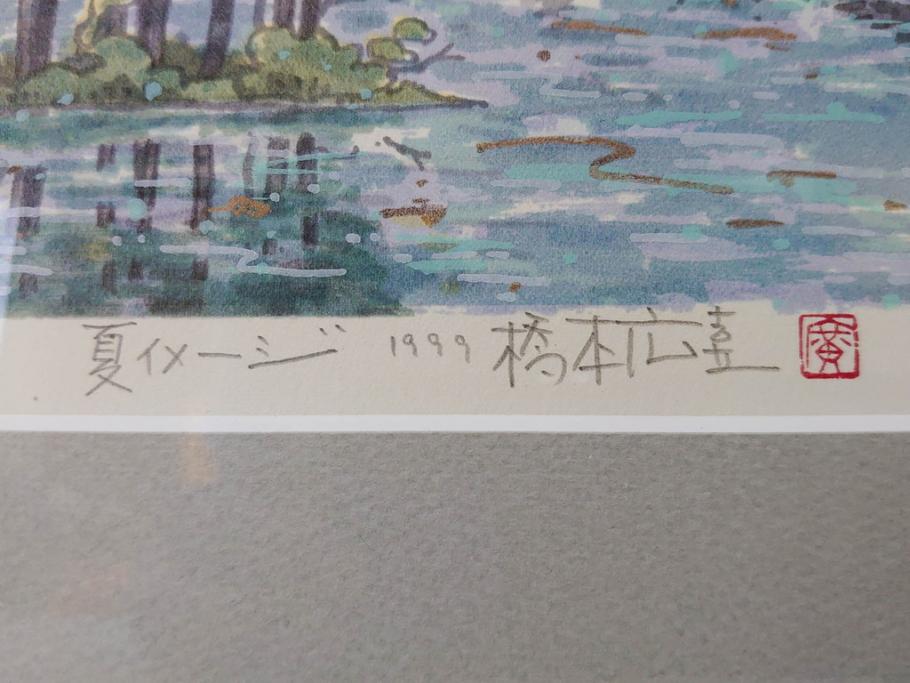 夏イメージ 1999 橋本広喜 廣